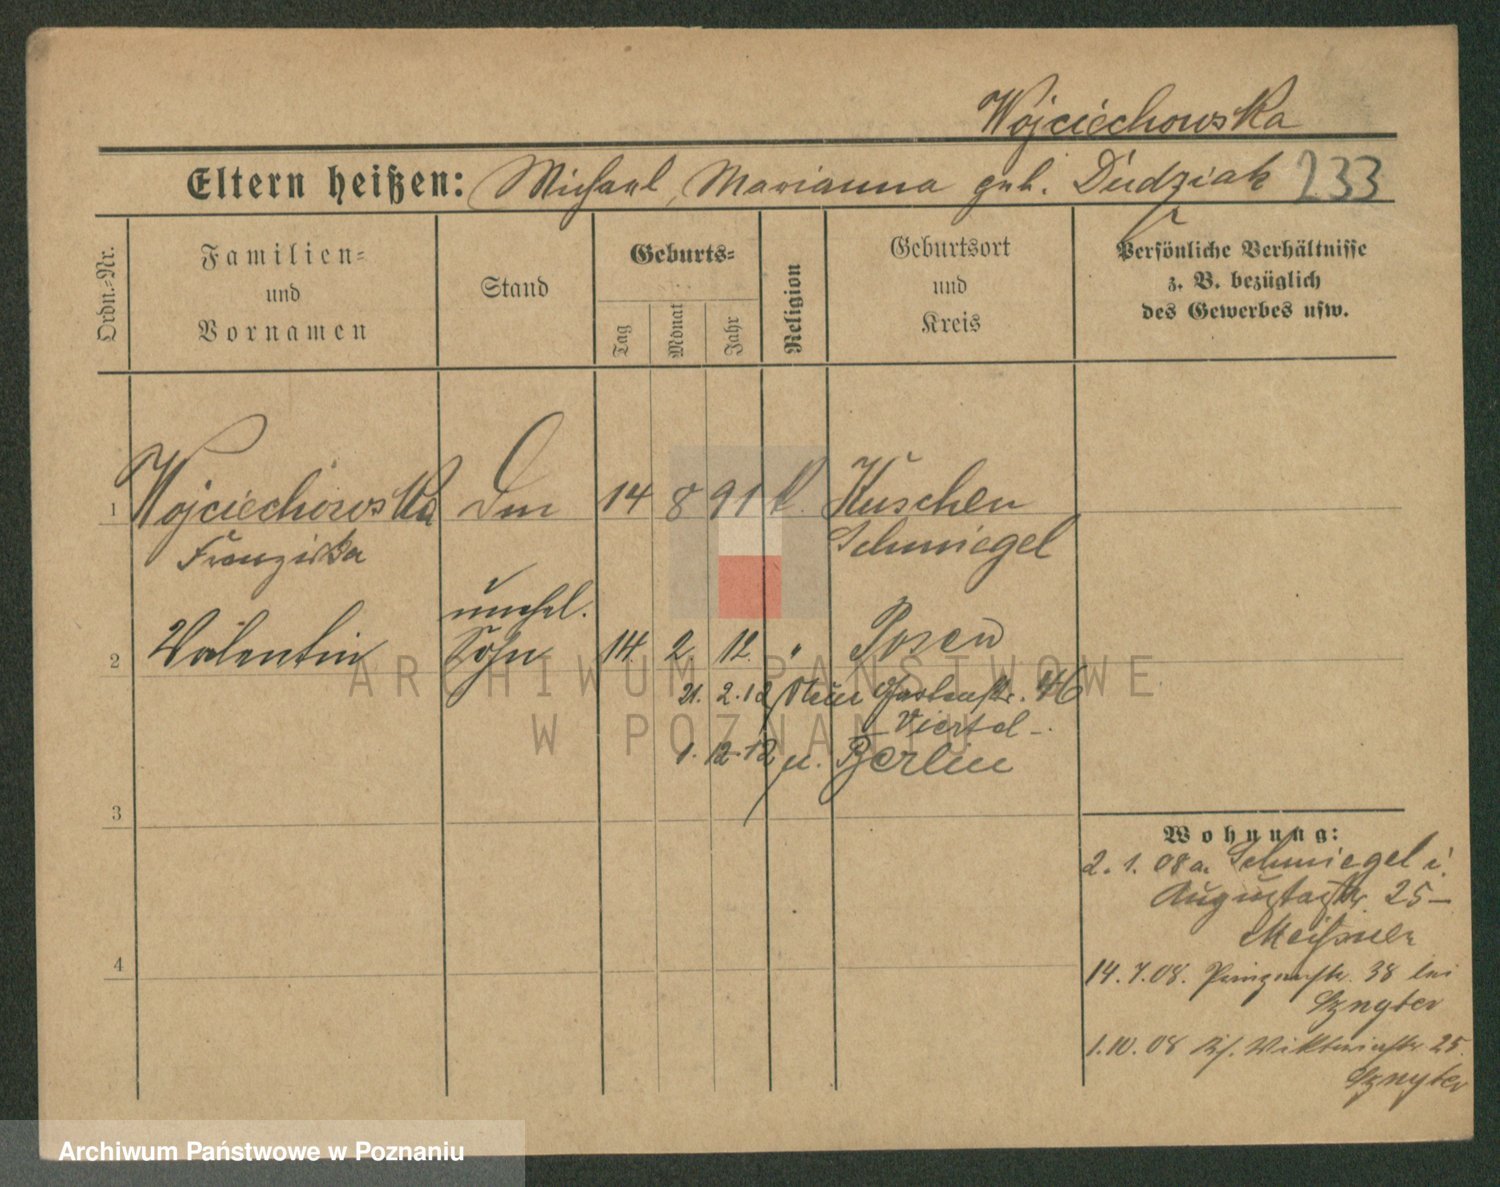 Wojciechowska
Eltern heißen: Michael, Marianna geb. Dudziak 233
Ordn.-Nr.
Familien-
und
Vornamen
Stand
Geburts-
Tag
Monat
Jahr
Religion
Geburtsort
und
Kreis
Persönliche Verhältnisse
z. B. bezüglich
des Gewerbes usw.
1 Wojciechowska 14 8 91 k. Kuschen
Franziska Schmiegel
unehel.
2 Valentin Sohn 14. 2. 12. " Posen
21. 2. 12 46
Viertel
1. 12. 12 n. Berlin
3
4
Wohnung:
2. 1. 08 a. Schmiegel i.
Augustastr. 25-
Meißner
14. 7. 08. 38 bei
Sznyter
1. 10. 08 Viktoriastr. 25.
Sznyter
ARCHIWUM PAŃSTWOWE
W POZNANIU
Archiwum Państwowe w Poznaniu